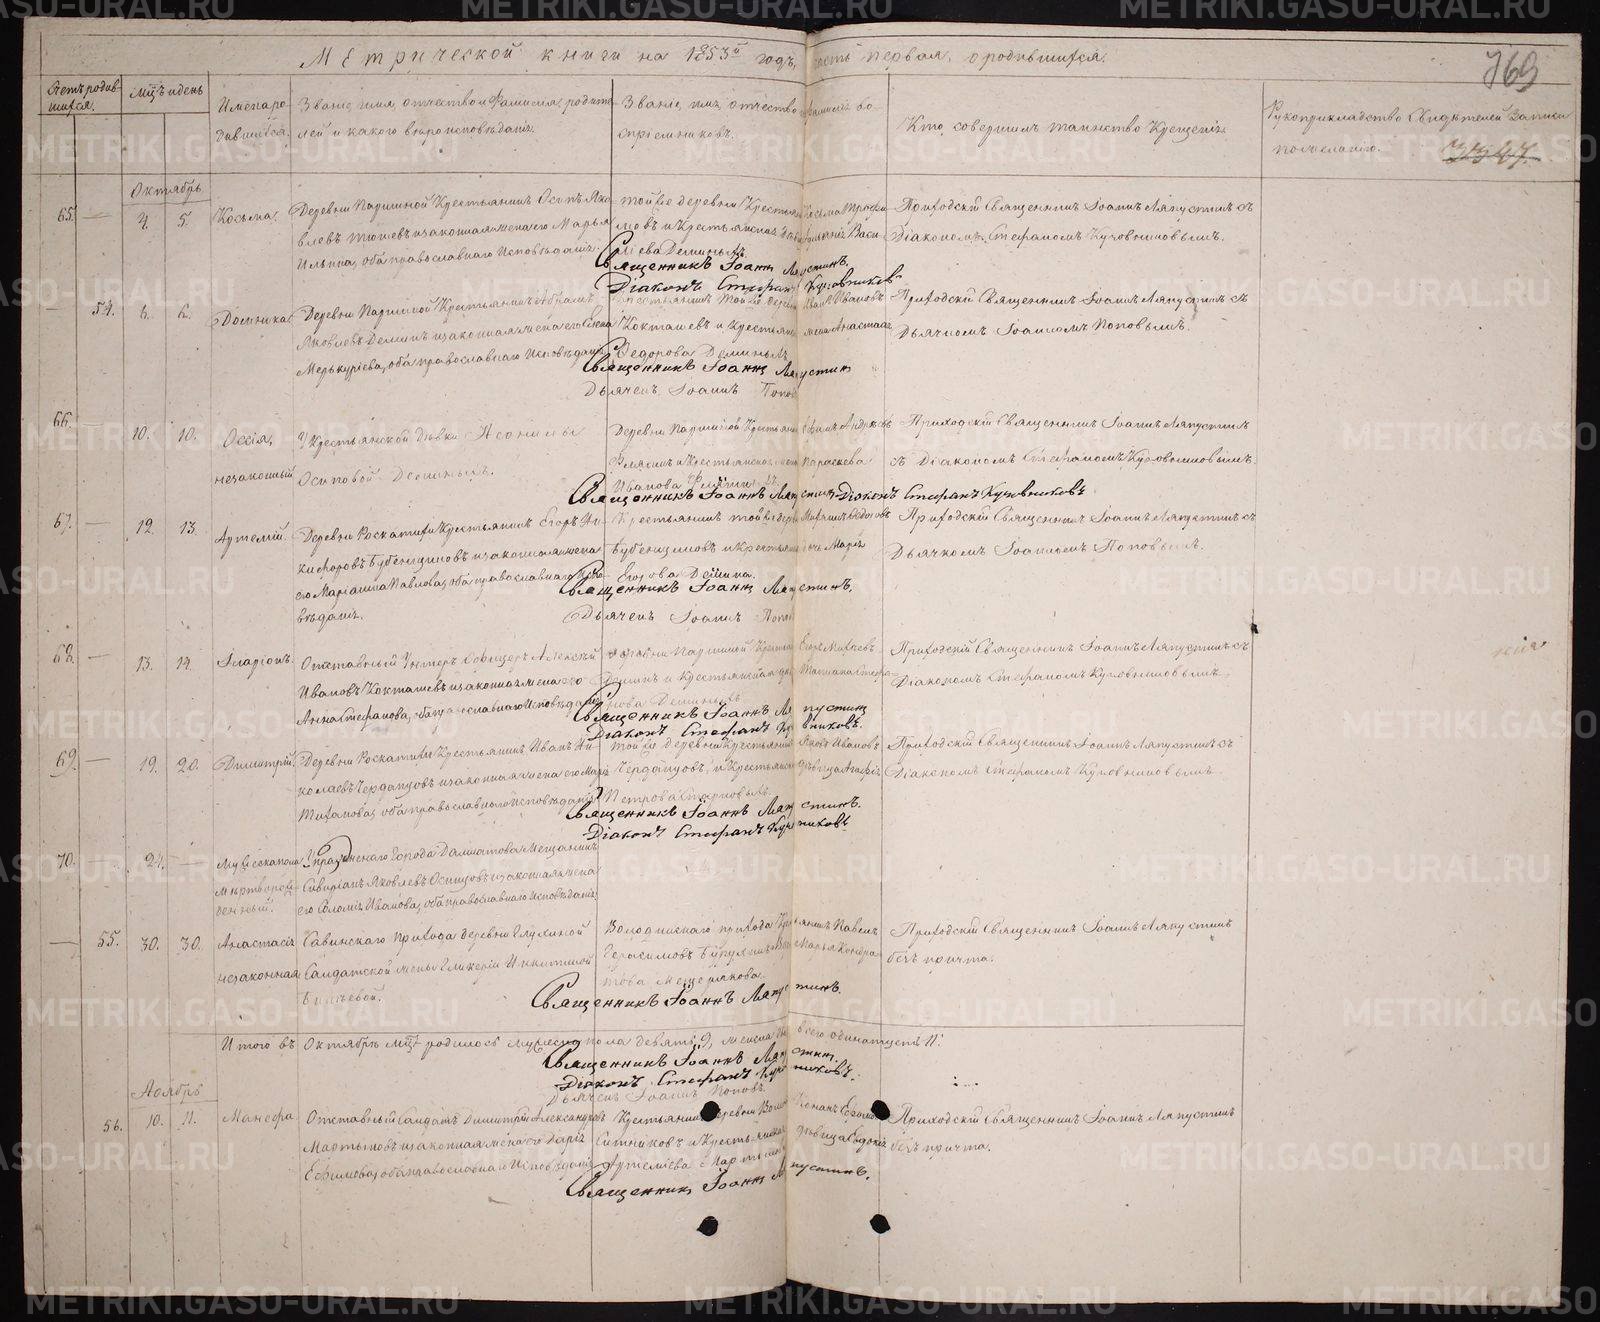 Метрической книги на 1853й годъ, часть первая, о родившихся.
769
Счетъ родив-
шихся.
Мцъ и день
Имена ро-
дившихся.
Званіе, имя, отчество и фамилія, родите-
лей и какого вѣроисповѣданія.
Званіе, имя, отчество и фамилія во-
спріемниковъ.
Кто совершилъ таинство Крещенія.
Рукоприкладство Свидѣтелей записи
по желанію.
3347.
Октябрь
65. — 4. 5. Косьма.
Деревни Паршиной Крестьянинъ Осипъ Яко-
влевъ и законная жена его Марья
Ильина, оба православнаго Исповѣданія.
той же деревни Крестьянинъ Косьма
и Крестьянская Васи-
ліева Деминыхъ.
Священникъ Іоаннъ Ляпустинъ.
Діаконъ Стефанъ Кузовниковъ
Приходскій Священникъ Іоаннъ Ляпустинъ съ
Діакономъ Стефаномъ Кузовниковымъ.
— 54. 6. 6. Домника.
Деревни Паршиной Крестьянинъ Абрамъ
Яковлевъ Деминъ и законная жена его Елена
Меркуріева, оба православнаго Исповѣданія
Крестьянинъ той же деревни Иванъ Ивановъ
Кокташевъ и Крестьянская жена Анастасія
Ѳедорова Деминыхъ
Священникъ Іоаннъ Ляпустинъ
Дьячекъ Іоаннъ Поповъ
Приходскій Священникъ Іоаннъ Ляпустинъ съ
Дьячкомъ Іоанномъ Поповымъ.
66. — 10. 10. Оссія,
незаконный
У Крестьянской Дѣвки
Осиповой Деминыхъ.
Деревни Паршиной Крестьянинъ Ефимъ Андреевъ
и Крестьянская жена Параскева
Иванова
Священникъ Іоаннъ Ляпустинъ Діаконъ Стефанъ Кузовниковъ
Приходскій Священникъ Іоаннъ Ляпустинъ
съ Діакономъ Стефаномъ Кузовниковымъ.
67. — 12. 13. Артемій.
Деревни Роскатихи Крестьянинъ Егоръ Ни-
кифоровъ Бубенщиковъ и законная жена
его Маріанна Павлова, оба православнаго Испо-
вѣданія.
Крестьянинъ той же деревни Ѳедоровъ
Бубенщиковъ и Крестьянская дочь Марія
Егорова Демина.
Священникъ Іоаннъ Ляпустинъ.
Дьячекъ Іоаннъ Поповъ
Приходскій Священникъ Іоаннъ Ляпустинъ съ
Дьячкомъ Іоанномъ Поповымъ.
68. — 13. 14. Іларіонъ.
Отставный Унтеръ Офицеръ Алексѣй
Ивановъ Кокташевъ и законная жена его
Анна Стефанова, оба православнаго Исповѣданія
деревни Паршиной Крестьянинъ Егоръ
Деминъ и Крестьянская Татіана
Деминыхъ
Священникъ Іоаннъ Ляпустинъ
Діаконъ Стефанъ Кузовниковъ.
Приходскій Священникъ Іоаннъ Ляпустинъ съ
Діакономъ Стефаномъ Кузовниковымъ.
69. — 19. 20. Димитрій.
Деревни Роскатихи Крестьянинъ Иванъ Ни-
колаевъ Чердапцовъ и законная жена его Марія
оба православнаго Исповѣданія
той же деревни Крестьянинъ Яковъ Ивановъ
Чердапцовъ, и Крестьянская дѣвица
Петрова
Священникъ Іоаннъ Ляпустинъ.
Діаконъ Стефанъ Кузовниковъ.
Приходскій Священникъ Іоаннъ Ляпустинъ съ
Діакономъ Стефаномъ Кузовниковымъ.
70. 24. — Мужескаго пола
мертворож-
денный.
Города Далматова Мещанинъ
Яковлевъ Осинцовъ и законная жена
его Соломія Иванова, оба православнаго Исповѣданія.
— 55. 30. 30. Анастасія
незаконная
Савинскаго прихода деревни Глухиной
Салдатской жены Гликеріи Никитиной
Володинскаго прихода Крестьянинъ Павелъ
Герасимовъ и Марья Кондра-
това Мещерякова.
Священникъ Іоаннъ Ляпустинъ.
Приходскій Священникъ Іоаннъ Ляпустинъ
безъ причта.
Итого въ Октябрѣ мцѣ родилось мужеска пола девять 9, женска два всего одинадцать 11.
Священникъ Іоаннъ Ляпустинъ.
Діаконъ Стефанъ Кузовниковъ.
Дьячекъ Іоаннъ Поповъ.
Ноябрь
56. 10. 11. Манефа
Отставный Салдатъ Димитрій Александровъ
Мартыновъ и законная жена его Дарія
Ефимова, оба православнаго Исповѣданія
Крестьянинъ деревни
Ситниковъ и Крестьянская дѣвица Евдокія
Артеміева Мартынова
Священникъ Іоаннъ Ляпустинъ.
Приходскій Священникъ Іоаннъ Ляпустинъ
безъ причта.
METRIKI.GASO-URAL.RU